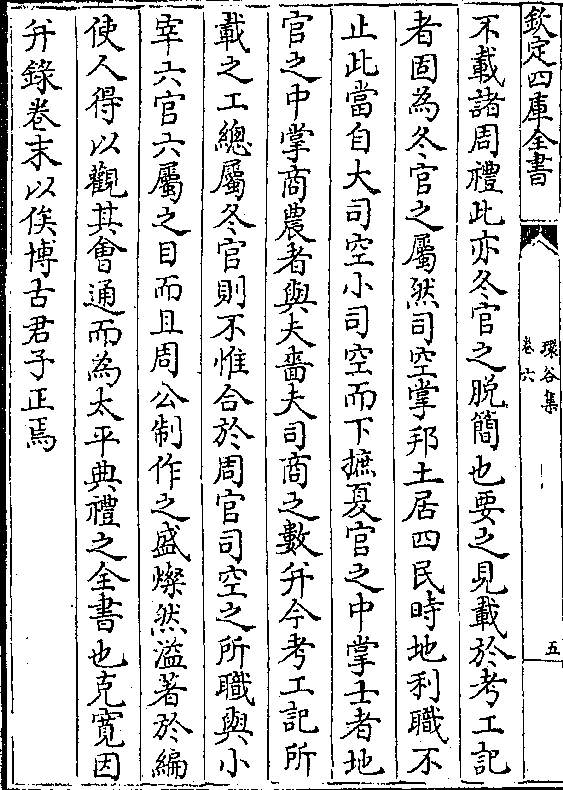 欽定四庫全書
環谷集
卷六
五
不載諸周禮此亦冬官之脱簡也要之見載於考工記
者固為冬官之屬然司空掌邦土居四民時地利職不
止此當自大司空小司空而下摭夏官之中掌士者地
官之中掌商農者與夫嗇夫司商之數并今考工記所
載之工總屬冬官則不惟合於周官司空之所職與小
宰六官六屬之目而且周公制作之盛燦然溢著於編
使人得以觀其㑹通而為太平典禮之全書也克寛因
并錄卷末以俟博古君子正焉